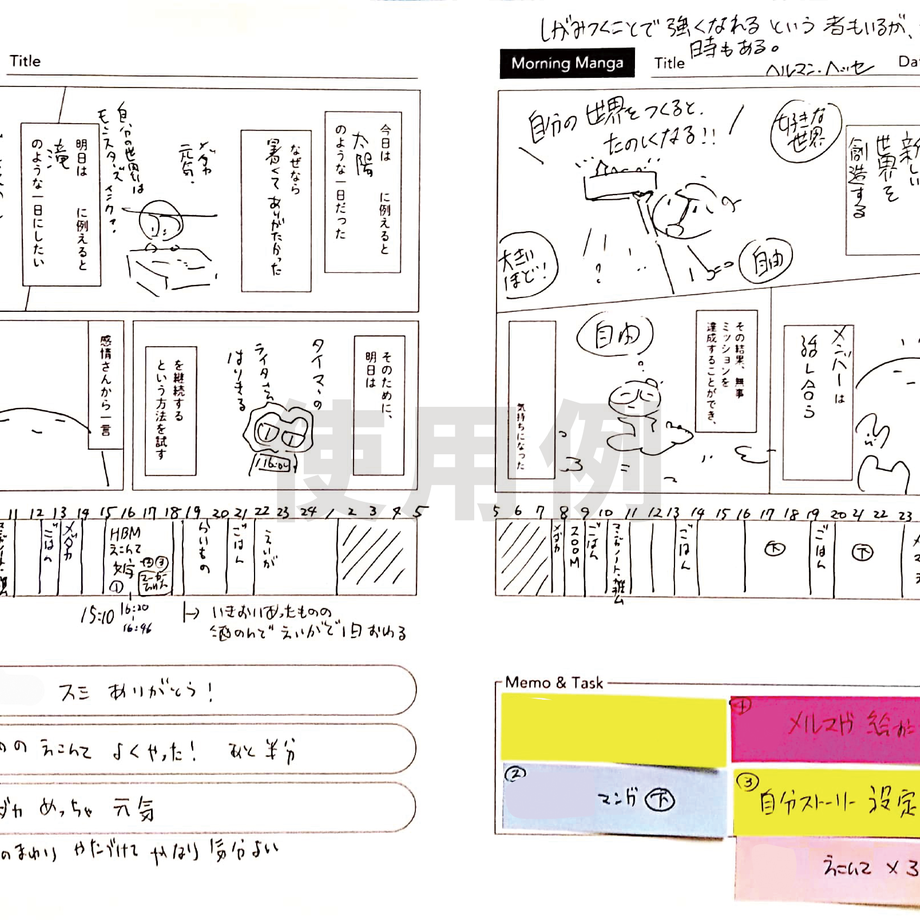 Title
今日は 太陽 に例えると
のような一日だった
なぜなら
暑くて ありがたかった
メダカ
元気。
自分の世界は
モンスターズ
インク?
明日は 滝 に例えると
のような一日にしたい
そのために、
明日は
タイマーの
ライオさん
はりきる
16:04
を継続する
という方法を試す
感情さんから一言
11 12 13 14 15 16 17 18 19 20 21 22 23 24 1 2 3 4 5
ごはん
メダカ
HBM
えこんて
①
②③
ごはん
えいが
15:10 16:20
16:46
いきおいあったものの
酒のんで えいがで1日おわる
スミ ありがとう!
えこんて よくやった! あと半分
めっちゃ 元気
のまわり かたづけて かなり 気分よい
しがみつくことで 強くなれる という 者もいるが、
時もある。
ヘルマン・ヘッセ
Morning Manga
Title
新しい
世界を
創造する
好きな
世界
自分の世界をつくると、
たのしくなる!!
大きい
ほど!
自由
メンバーは
話し合う
その結果、無事
ミッションを
達成することができ、
自由
気持ちになった
5 6 7 8 9 10 11 12 13 14 15 16 17 18 19 20 21 22 23
メダカ
ZOOM
ごはん
ごはん
下
ごはん
下
Memo & Task
①
メルマガ 絵
②
マンガ 下
③
自分ストーリー 設定
えこんて × 3
使用例